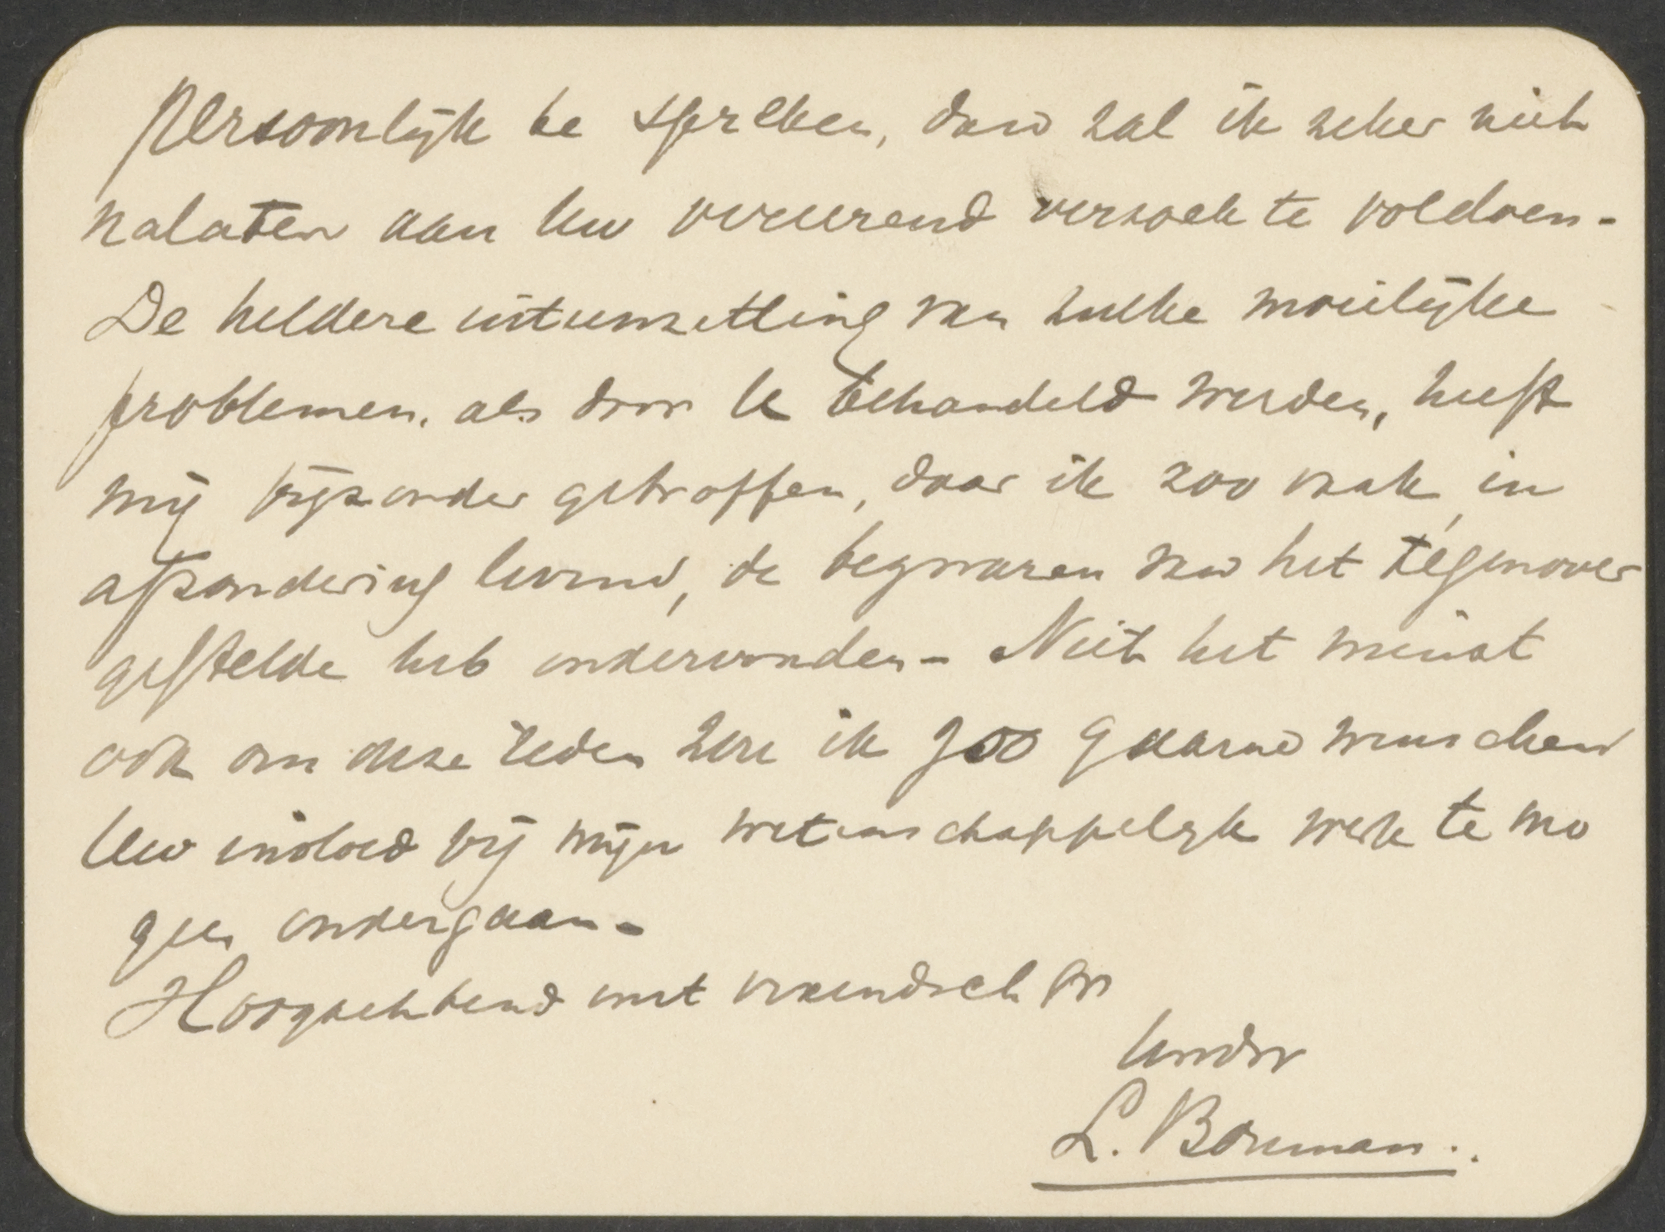 persoonlijk te spreken, dan zal ik zeker niet
nalaten aan Uw vereerend verzoek te voldoen -
De heldere uiteenzetting van zulke moeilijke
problemen, als door U behandeld werden, heeft
mij bijzonder getroffen, daar ik zoo vaak, in
afzondering levend, de bezwaren van het tegenover
gestelde heb ondervonden - Niet het minst
ook om deze reden zou ik zoo gaarne wenschen
Uw invloed bij mijn wetenschappelijk werk te mo
gen ondergaan -
Hoogachtend met vriendsch gr
Uwdw
L. Bouman.